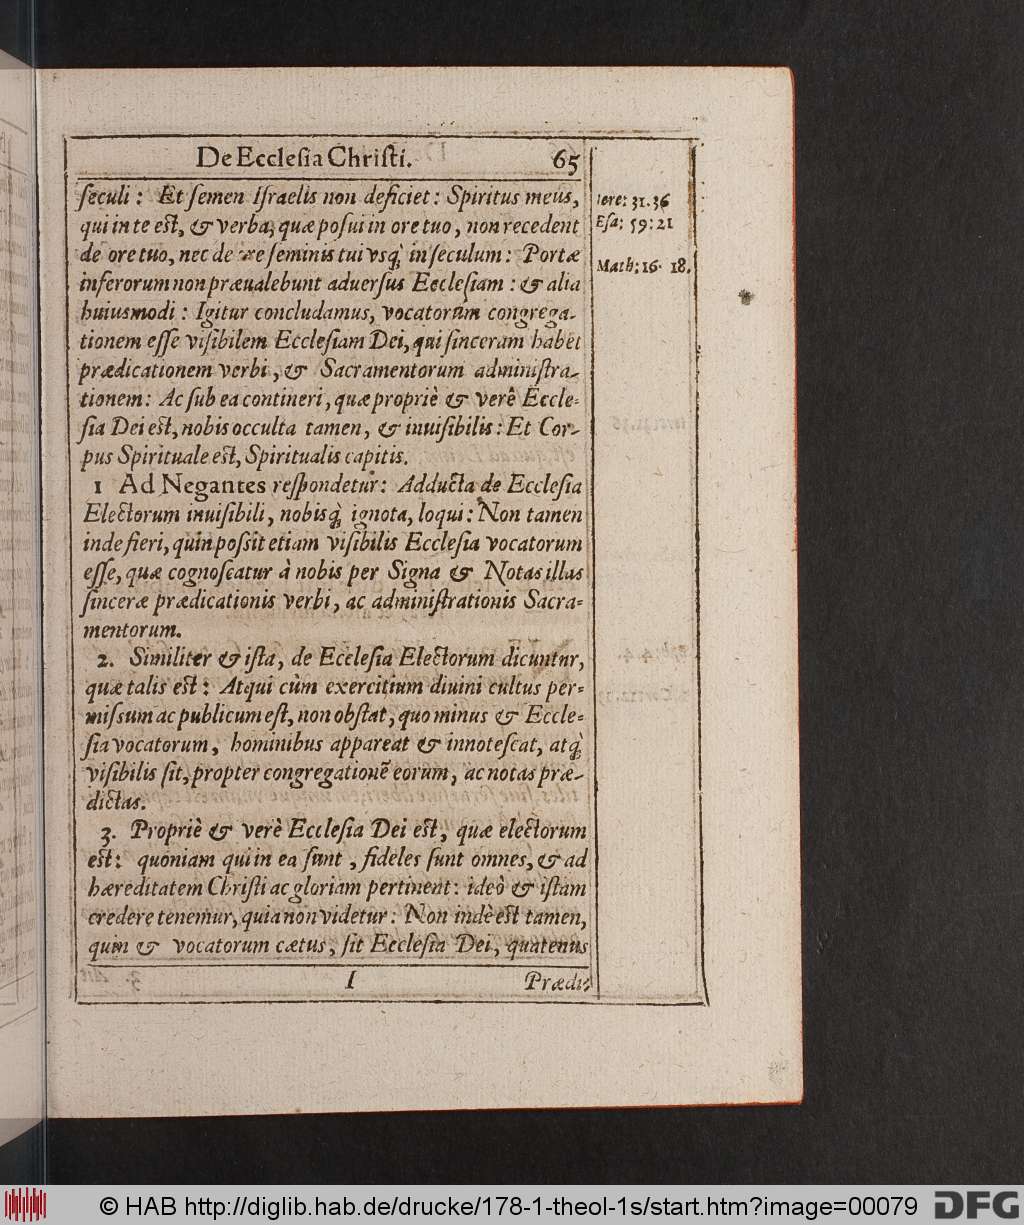 De Ecclesia Christi. 65
seculi : Et semen Israelis non deficiet : Spiritus meus,
qui in te est, & verba, quæ posui in ore tuo, non recedent
de ore tuo, nec de ore seminis tui vsq; in seculum : Portæ
inferorum non præualebunt aduersus Ecclesiam : & alia
huiusmodi : Igitur concludamus, vocatorum congrega-
tionem esse visibilem Ecclesiam Dei, qui sinceram habet
prædicationem verbi, & Sacramentorum administra-
tionem: Ac sub ea contineri, quæ propriè & verè Eccle-
sia Dei est, nobis occulta tamen, & inuisibilis : Et Cor-
pus Spirituale est, Spiritualis capitis.
1 Ad Negantes respondetur: Adducta de Ecclesia
Electorum inuisibili, nobisq; ignota, loqui : Non tamen
inde fieri, quin possit etiam visibilis Ecclesia vocatorum
esse, quæ cognoscatur à nobis per Signa & Notas illas
sinceræ prædicationis verbi, ac administrationis Sacra-
mentorum.
2. Similiter & ista, de Ecclesia Electorum dicuntur,
quæ talis est : Atqui cùm exercitium diuini cultus per-
missum ac publicum est, non obstat, quo minus & Eccle-
sia vocatorum, hominibus appareat & innotescat, atq;
visibilis sit, propter congregationē eorum, ac notas præ-
dictas.
3. Propriè & verè Ecclesia Dei est, quæ electorum
est : quoniam qui in ea sunt, fideles sunt omnes, & ad
hæreditatem Christi ac gloriam pertinent : ideò & istam
credere tenemur, quia non videtur : Non indè est tamen,
quin & vocatorum cætus, sit Ecclesia Dei, quatenus
I Prædi-
Iere: 31.36
Esa; 59:21
Math; 16. 18.
© HAB http://diglib.hab.de/drucke/178-1-theol-1s/start.htm?image=00079
DFG